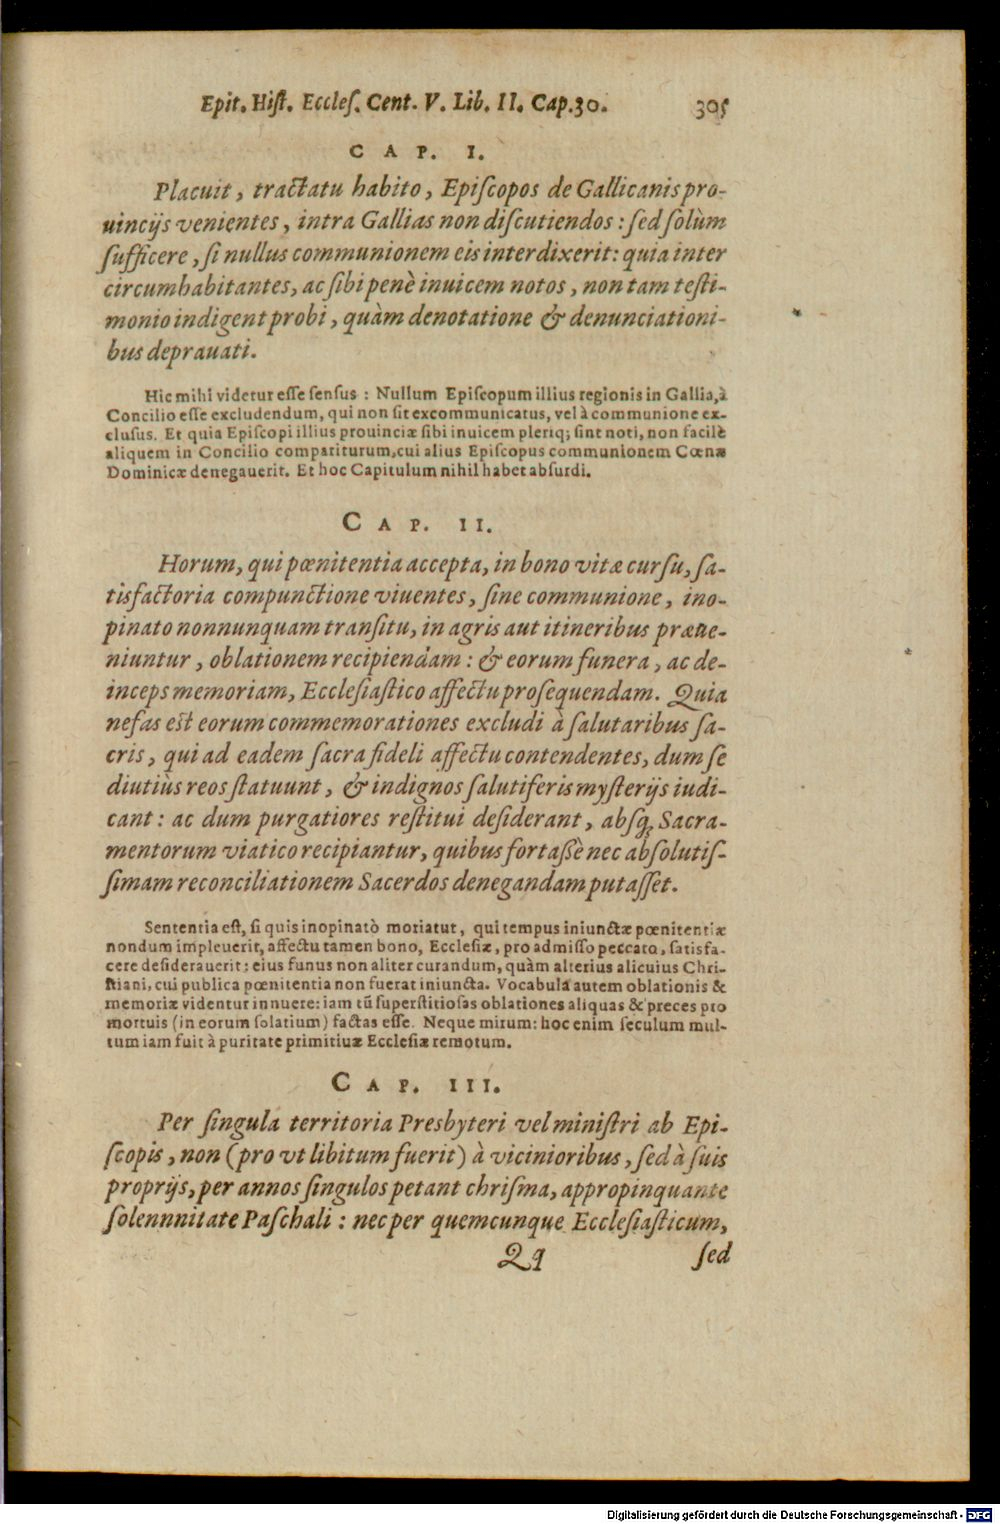 Epit. Hiſt. Eccleſ. Cent. V. Lib. II. Cap. 30. 305
CAP. I.
Placuit, tractatu habito, Epiſcopos de Gallicanis pro-
uincijs venientes, intra Gallias non diſcutiendos: ſed ſolùm
ſufficere, ſi nullus communionem eis interdixerit: quia inter
circumhabitantes, ac ſibi penè inuicem notos, non tam teſti-
monio indigent probi, quàm denotatione & denunciationi-
bus deprauati.
Hic mihi videtur eſſe ſenſus: Nullum Epiſcopum illius regionis in Gallia, à
Concilio eſſe excludendum, qui non ſit excommunicatus, vel à communione ex-
cluſus. Et quia Epiſcopi illius prouinciæ ſibi inuicem pleriq; ſint noti, non facilè
aliquem in Concilio compariturum, cui alius Epiſcopus communionem Cœnæ
Dominicæ denegauerit. Et hoc Capitulum nihil habet abſurdi.
CAP. II.
Horum, qui pœnitentia accepta, in bono vitæ curſu, ſa-
tisfactoria compunctione viuentes, ſine communione, ino-
pinato nonnunquam tranſitu, in agris aut itineribus præue-
niuntur, oblationem recipiendam: & eorum funera, ac de-
inceps memoriam, Eccleſiaſtico affectu proſequendam. Quia
nefas est eorum commemorationes excludi à ſalutaribus ſa-
cris, qui ad eadem ſacra fideli affectu contendentes, dum ſe
diutiùs reos ſtatuunt, & indignos ſalutiferis myſterijs iudi-
cant: ac dum purgatiores reſtitui deſiderant, abſq; Sacra-
mentorum viatico recipiantur, quibus fortaſſè nec abſolutiſ-
ſimam reconciliationem Sacerdos denegandam putaſſet.
Sententia eſt, ſi quis inopinatò moriatur, qui tempus iniunctæ pœnitentiæ
nondum impleuerit, affectu tamen bono, Eccleſiæ, pro admiſſo peccato, ſatisfa-
cere deſiderauerit: eius funus non aliter curandum, quàm alterius alicuius Chri-
ſtiani, cui publica pœnitentia non fuerat iniuncta. Vocabula autem oblationis &
memoriæ videntur innuere: iam tũ ſuperſtitioſas oblationes aliquas & preces pro
mortuis (in eorum ſolatium) factas eſſe. Neque mirum: hoc enim ſeculum mul-
tum iam fuit à puritate primitiuæ Eccleſiæ remotum.
CAP. III.
Per ſingula territoria Presbyteri vel miniſtri ab Epi-
ſcopis, non (pro vt libitum fuerit) à vicinioribus, ſed à ſuis
proprijs, per annos ſingulos petant chriſma, appropinquante
ſolennnitate Paſchali: nec per quemcunque Eccleſiaſticum,
Qq ſed
Digitalisierung gefördert durch die Deutsche Forschungsgemeinschaft - DFG